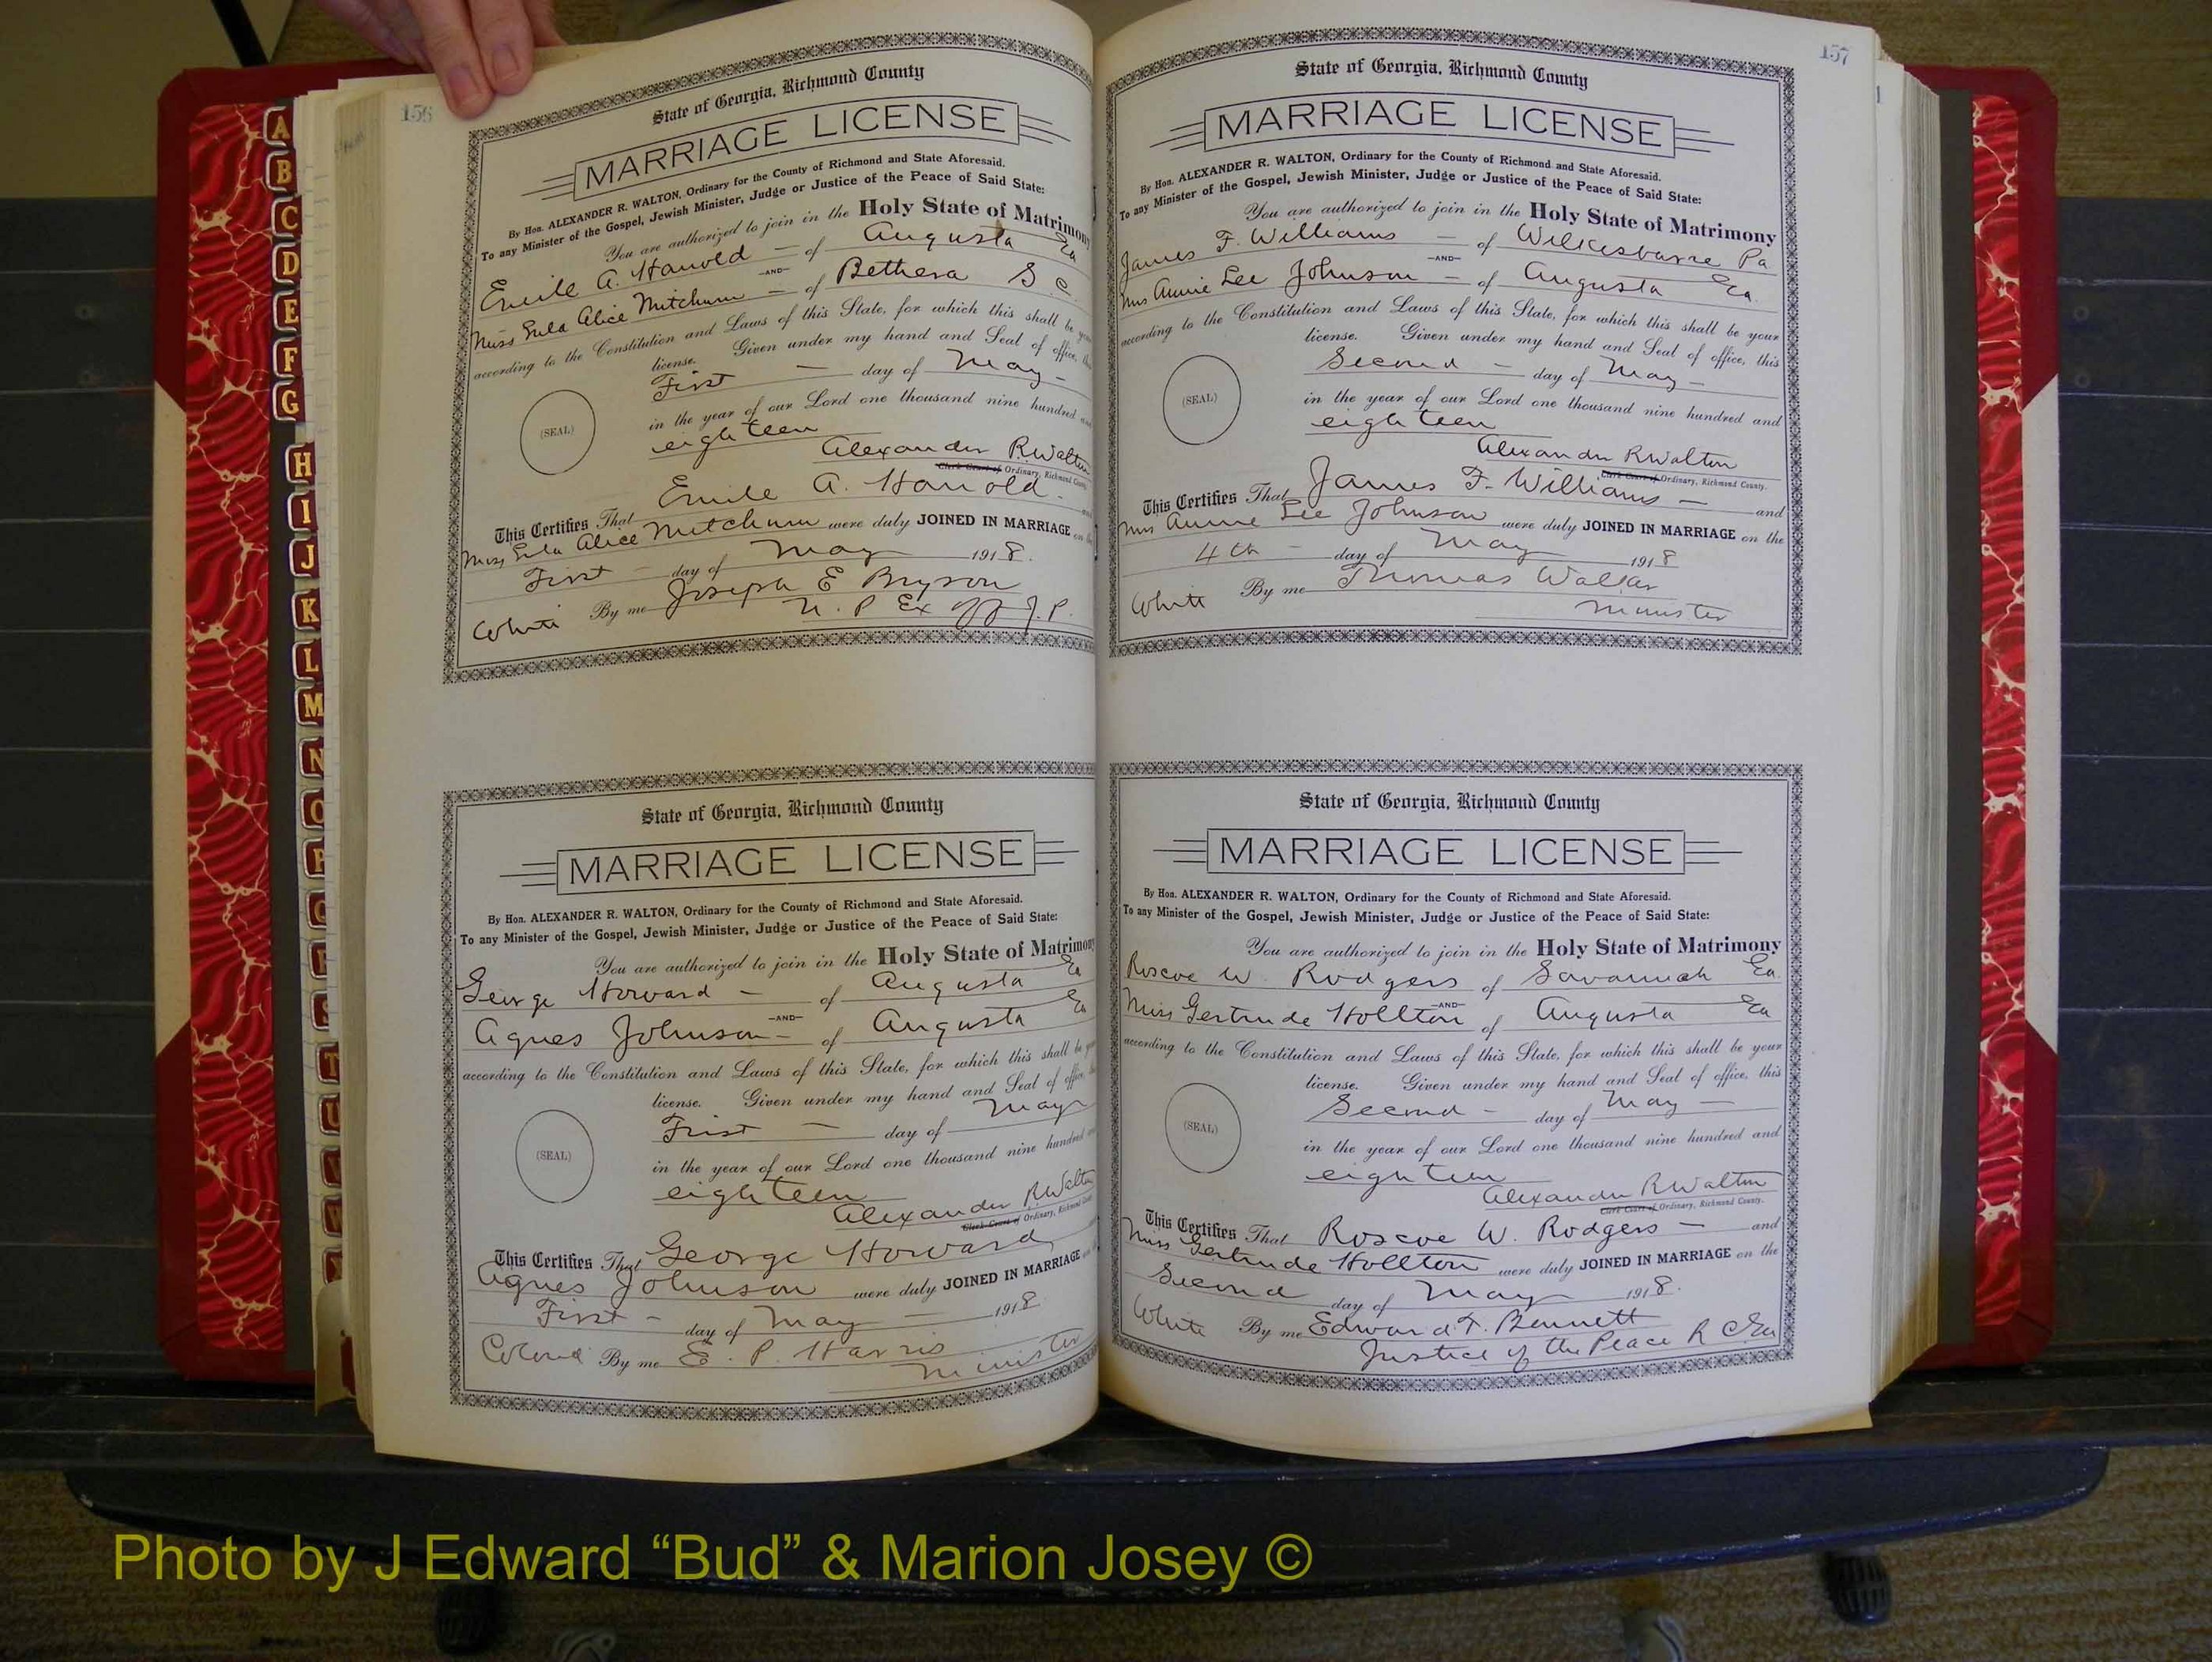 156
State of Georgia, Richmond County
MARRIAGE LICENSE
By Hon. ALEXANDER R. WALTON, Ordinary for the County of Richmond and State Aforesaid.
To any Minister of the Gospel, Jewish Minister, Judge or Justice of the Peace of Said State:
You are authorized to join in the Holy State of Matrimony
Emile A. Harrold - of Augusta Ga
-AND-
Miss Eula Alice Mitchum - of Bethera S C.
according to the Constitution and Laws of this State, for which this shall be your
license. Given under my hand and Seal of office, this
First - day of May -
(SEAL)
in the year of our Lord one thousand nine hundred and
eighteen
Alexander R Walton
Clerk Court of Ordinary, Richmond County.
This Certifies That Emile A. Harrold - and
Miss Eula Alice Mitchum were duly JOINED IN MARRIAGE on the
First - day of May 1918.
White By me Joseph E Bryson
N. P Ex Off J. P.
State of Georgia, Richmond County
MARRIAGE LICENSE
By Hon. ALEXANDER R. WALTON, Ordinary for the County of Richmond and State Aforesaid.
To any Minister of the Gospel, Jewish Minister, Judge or Justice of the Peace of Said State:
You are authorized to join in the Holy State of Matrimony
George Howard - of Augusta Ga
-AND-
Agnes Johnson - of Augusta Ga
according to the Constitution and Laws of this State, for which this shall be your
license. Given under my hand and Seal of office, this
First - day of May
(SEAL)
in the year of our Lord one thousand nine hundred and
eighteen
Alexander R Walton
Clerk Court of Ordinary, Richmond County.
This Certifies That George Howard
Agnes Johnson were duly JOINED IN MARRIAGE on the
First - day of May 1918
Colored By me E. P. Harris
Minister
157
State of Georgia, Richmond County
MARRIAGE LICENSE
By Hon. ALEXANDER R. WALTON, Ordinary for the County of Richmond and State Aforesaid.
To any Minister of the Gospel, Jewish Minister, Judge or Justice of the Peace of Said State:
You are authorized to join in the Holy State of Matrimony
James F. Williams - of Wilkesbarre Pa
-AND-
Mrs Annie Lee Johnson - of Augusta Ga
according to the Constitution and Laws of this State, for which this shall be your
license. Given under my hand and Seal of office, this
Second - day of May -
(SEAL)
in the year of our Lord one thousand nine hundred and
eighteen
Alexander R Walton
Clerk Court of Ordinary, Richmond County.
This Certifies That James F. Williams - and
Mrs Annie Lee Johnson were duly JOINED IN MARRIAGE on the
4th - day of May 1918
White By me Thomas Walker
Minister
State of Georgia, Richmond County
MARRIAGE LICENSE
By Hon. ALEXANDER R. WALTON, Ordinary for the County of Richmond and State Aforesaid.
To any Minister of the Gospel, Jewish Minister, Judge or Justice of the Peace of Said State:
You are authorized to join in the Holy State of Matrimony
Roscoe W. Rodgers of Savannah Ga.
-AND-
Miss Gertrude Hollton of Augusta Ga
according to the Constitution and Laws of this State, for which this shall be your
license. Given under my hand and Seal of office, this
Second - day of May -
(SEAL)
in the year of our Lord one thousand nine hundred and
eighteen
Alexander R Walton
Clerk Court of Ordinary, Richmond County.
This Certifies That Roscoe W. Rodgers - and
Miss Gertrude Hollton were duly JOINED IN MARRIAGE on the
Second day of May 1918.
White By me Edward T. Bennett
Justice of the Peace R C Ga
A
B
C
D
E
F
G
H
I
J
K
L
M
N
O
P
Q
R
S
T
U
V
W
Photo by J Edward “Bud” & Marion Josey ©